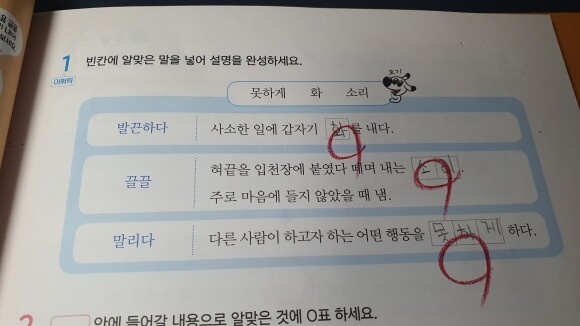 1 빈칸에 알맞은 말을 넣어 설명을 완성하세요.
어휘력
보기
못하게 화 소리
발끈하다 사소한 일에 갑자기 화를 내다.
끌끌 혀끝을 입천장에 붙였다 떼며 내는 소리.
주로 마음에 들지 않았을 때 냄.
말리다 다른 사람이 하고자 하는 어떤 행동을 못하게 하다.
2 안에 들어갈 내용으로 알맞은 것에 O표 하세요.